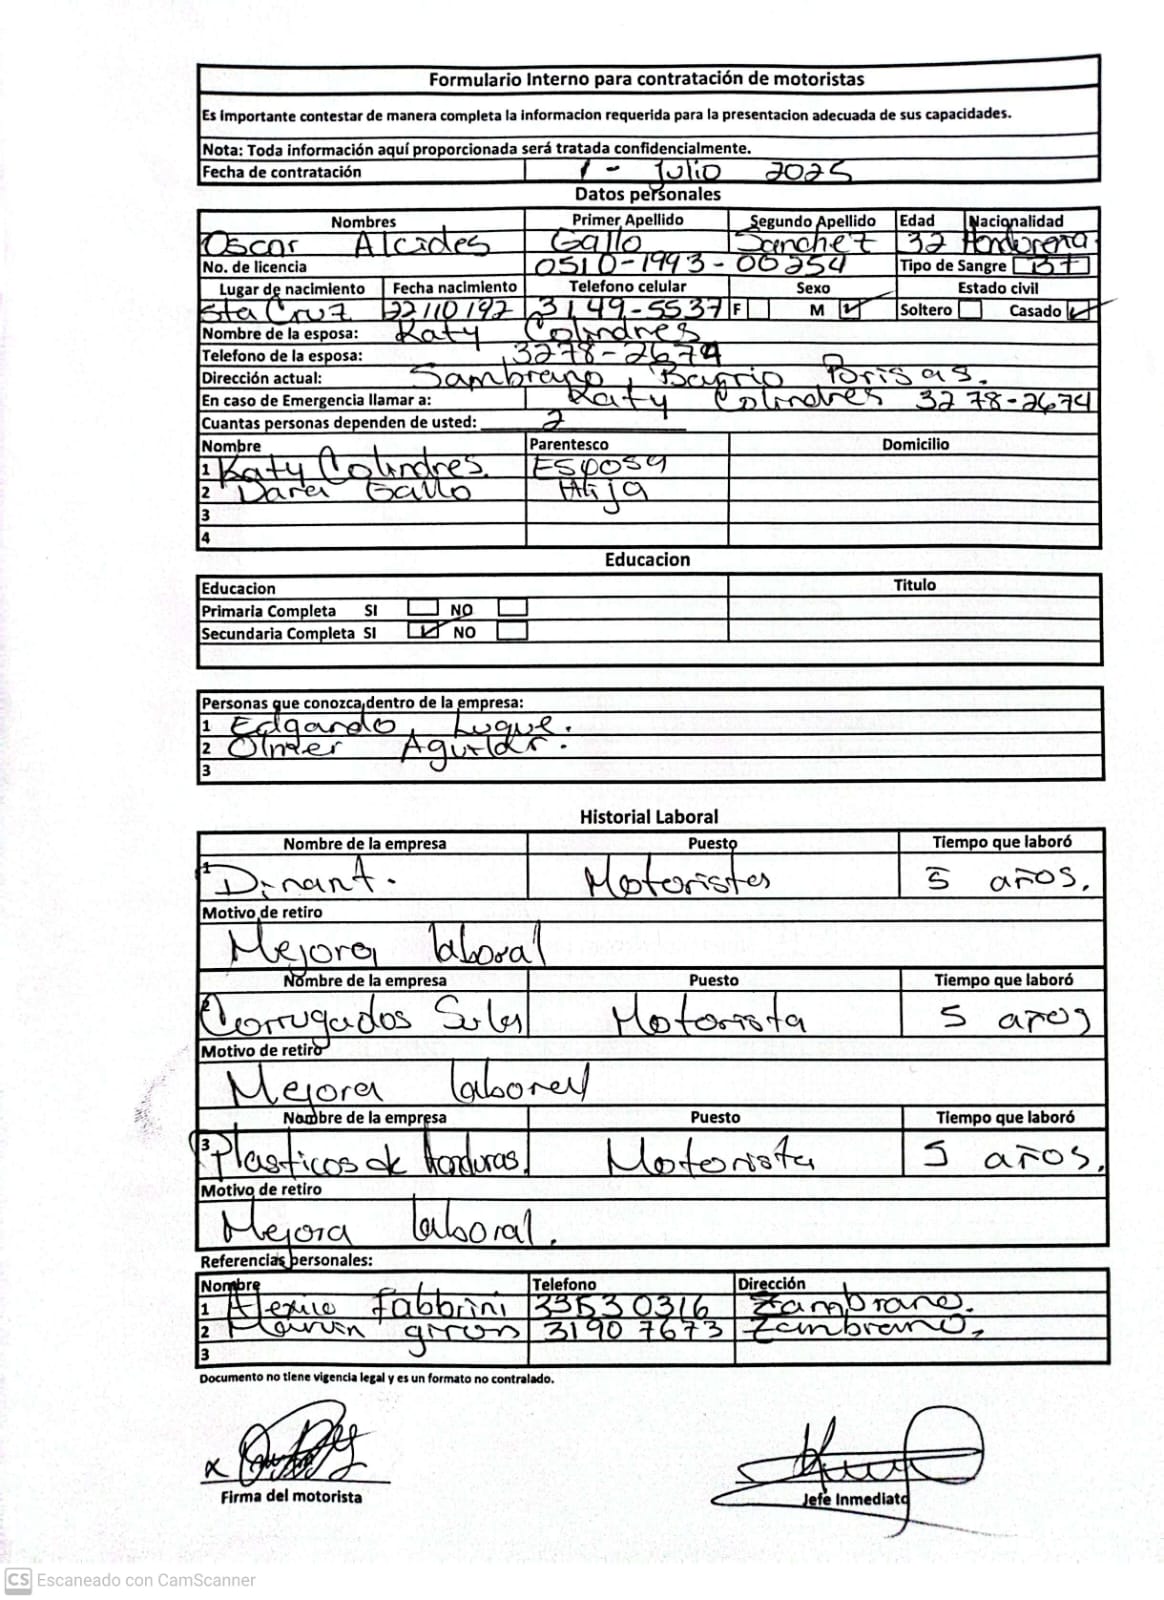 Formulario Interno para contratación de motoristas
Es Importante contestar de manera completa la informacion requerida para la presentacion adecuada de sus capacidades.
Nota: Toda información aquí proporcionada será tratada confidencialmente.
Fecha de contratación 1 - Julio 2025
Datos personales
Nombres Primer Apellido Segundo Apellido Edad Nacionalidad
Oscar Alcides Gallo Sanchez 32 Hondurena
No. de licencia 0510-1993-00254 Tipo de Sangre B+
Lugar de nacimiento Fecha nacimiento Telefono celular Sexo Estado civil
Sta Cruz 22/10/92 3149-5537 F M Soltero Casado
Nombre de la esposa: Katy Colindres
Telefono de la esposa: 3278-2674
Dirección actual: Sambrano, Barrio Brisas.
En caso de Emergencia llamar a: Katy Colindres 3278-2674
Cuantas personas dependen de usted: 2
Nombre Parentesco Domicilio
1 Katy Colindres. Esposa
2 Gallo Hija
3
4
Educacion
Educacion Titulo
Primaria Completa SI NO
Secundaria Completa SI NO
Personas que conozca dentro de la empresa:
1 Edgardo Luque.
2 Olmer Aguilar.
3
Historial Laboral
Nombre de la empresa Puesto Tiempo que laboró
1 Dinant. Motoristes 5 años.
Motivo de retiro
Mejora laboral
Nombre de la empresa Puesto Tiempo que laboró
2 Corrugados Motorista 5 años
Motivo de retiro
Mejora laboral
Nombre de la empresa Puesto Tiempo que laboró
3 Plasticos de Honduras. Motorista 5 años.
Motivo de retiro
Mejora laboral.
Referencias personales:
Nombre Telefono Dirección
1 Fabbrini 33530316 Zambrano.
2 Marvin giron 3190 7673 Zambrano.
3
Documento no tiene vigencia legal y es un formato no contralado.
x
Firma del motorista Jefe Inmediato
CS Escaneado con CamScanner